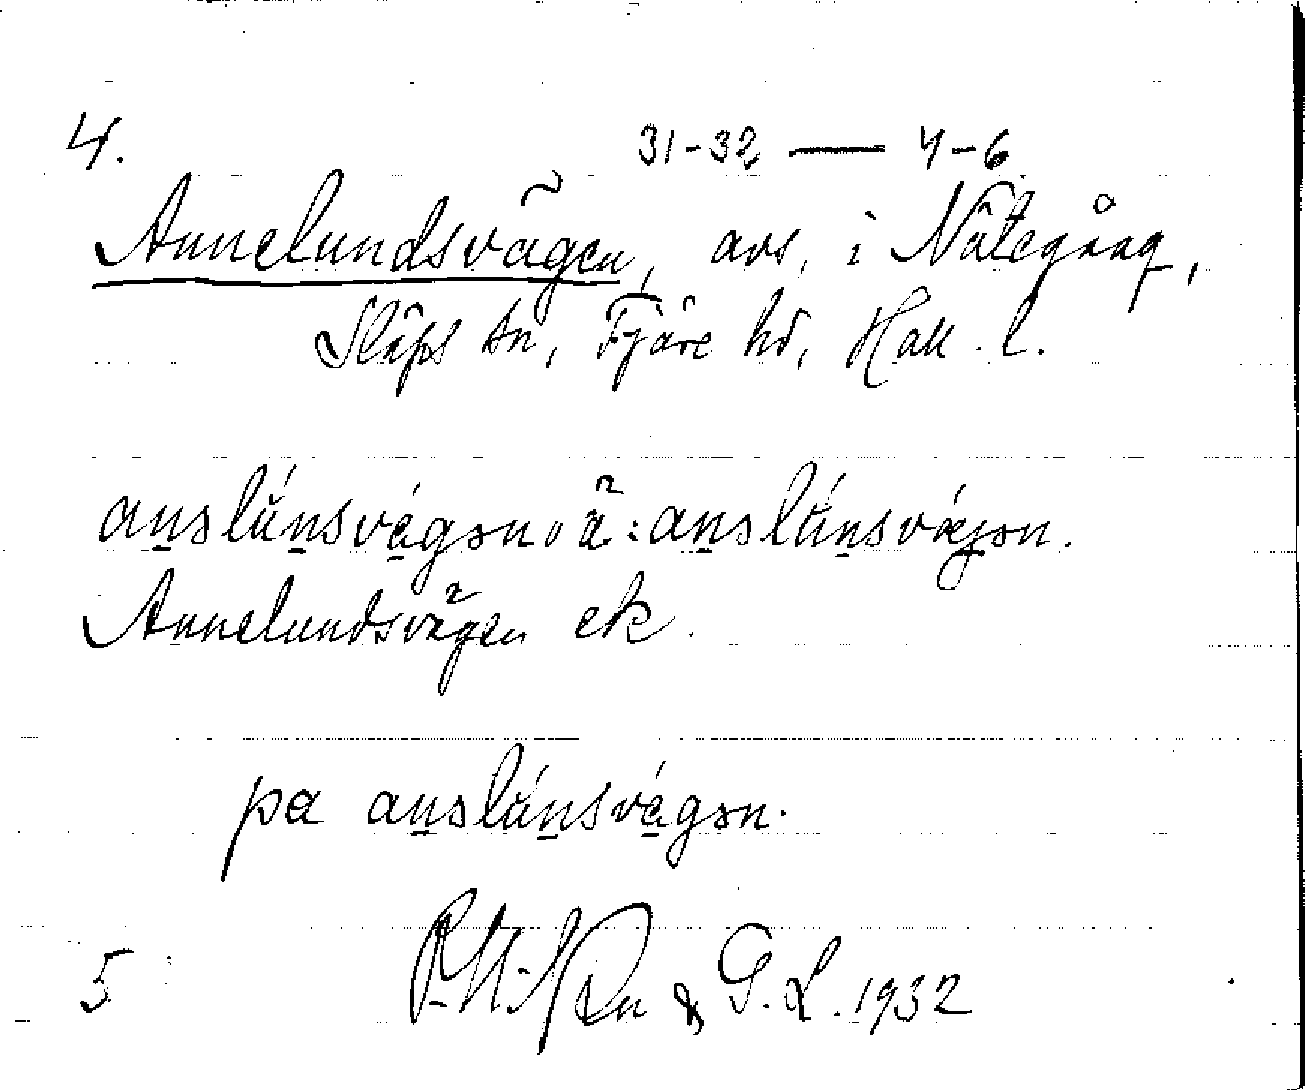 4. 31-32 — 4-6
Annelundsvägen, avs. i Nötegång,
Släps sn, Fjäre hd, Hall. l.
anslúnsvágən, ä: anslúnsvájən.
Annelundsvägen ek.
pa anslúnsvágən.
5 & G. L. 1932